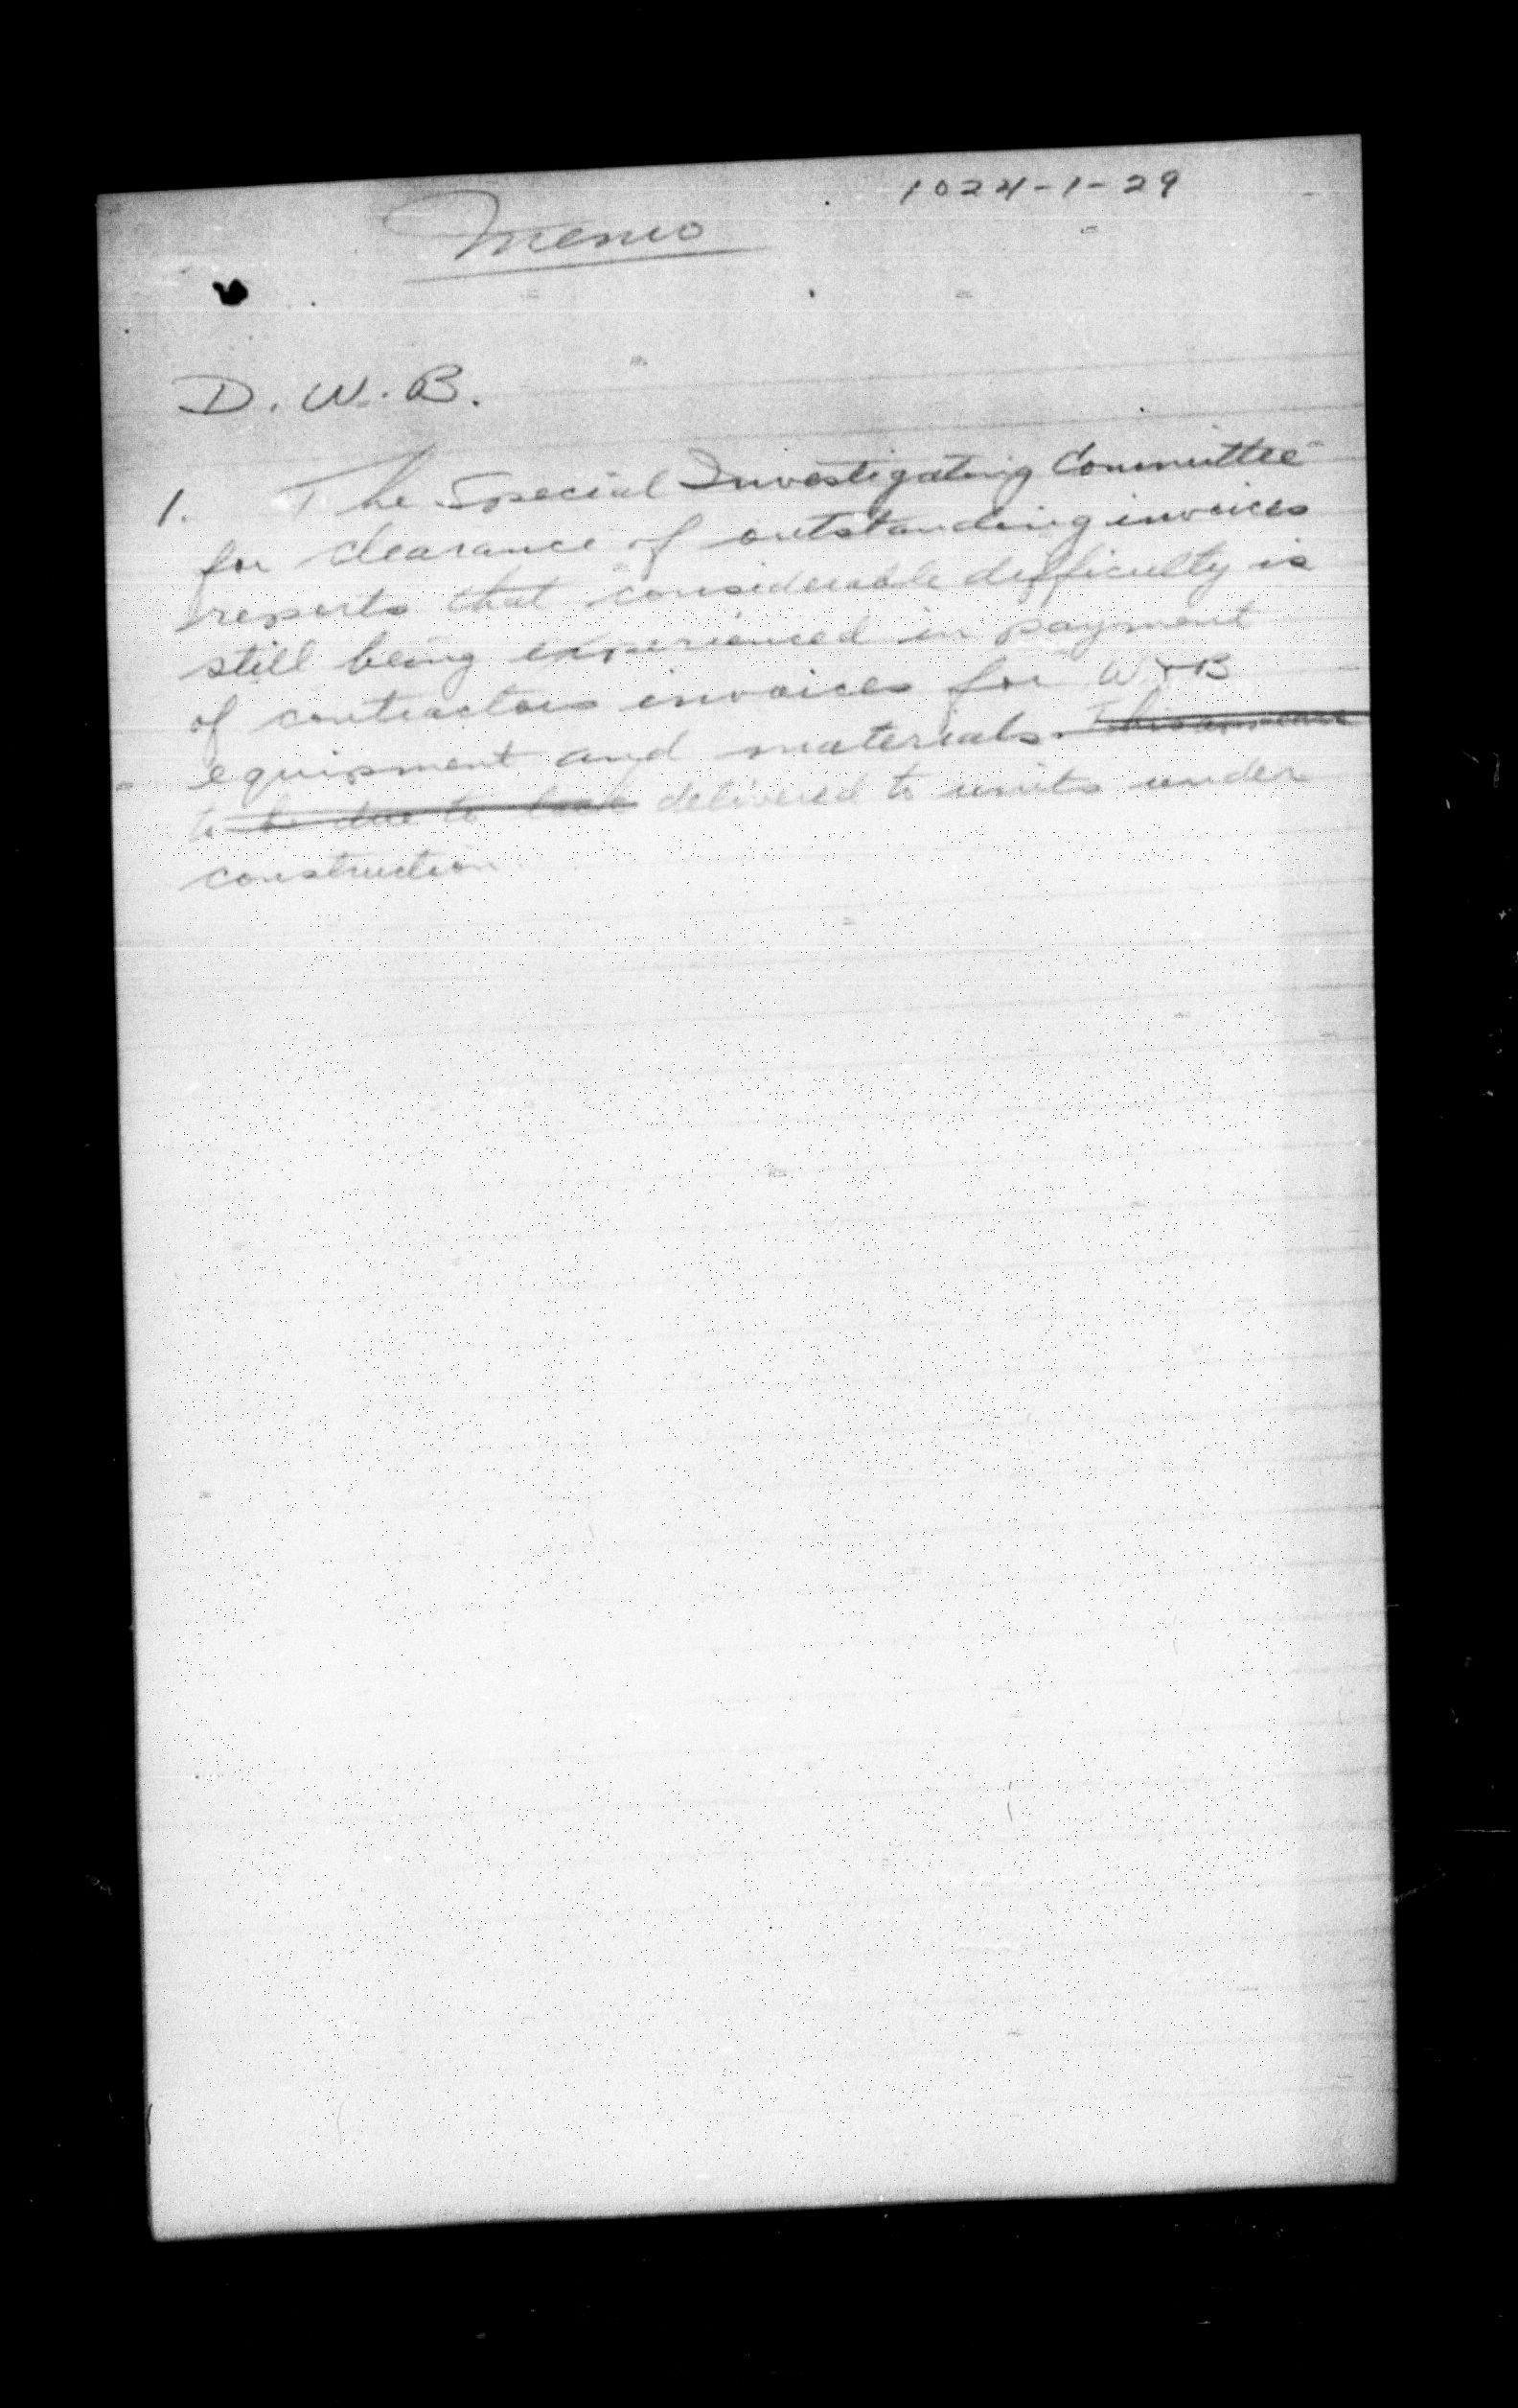 1024-1-29
Memo
D. W. B.
1. The Special Investigating Committee
for clearance of outstanding invoices
reports that considerable difficulty is
still being experienced in payment
of contractors invoices for W & B
equipment and materials. This appears
to be due to lack delivered to units under
construction.